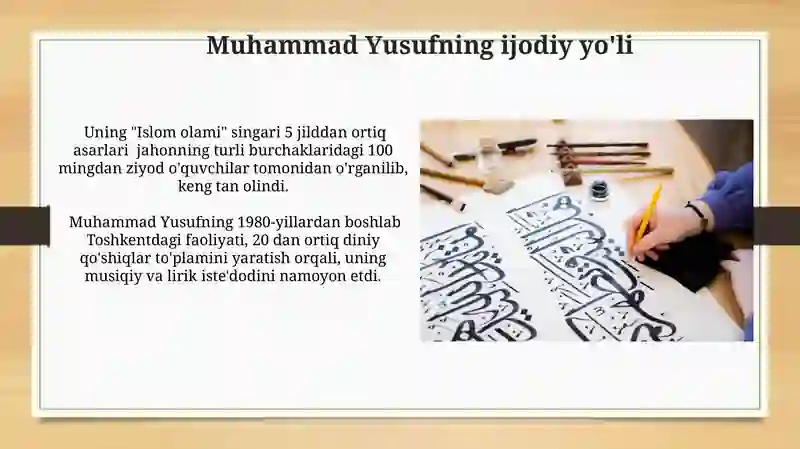 Muhammad Yusufning ijodiy yo'li
Uning "Islom olami" singari 5 jilddan ortiq
asarlari jahonning turli burchaklaridagi 100
mingdan ziyod o'quvchilar tomonidan o'rganilib,
keng tan olindi.
Muhammad Yusufning 1980-yillardan boshlab
Toshkentdagi faoliyati, 20 dan ortiq diniy
qo'shiqlar to'plamini yaratish orqali, uning
musiqiy va lirik iste'dodini namoyon etdi.